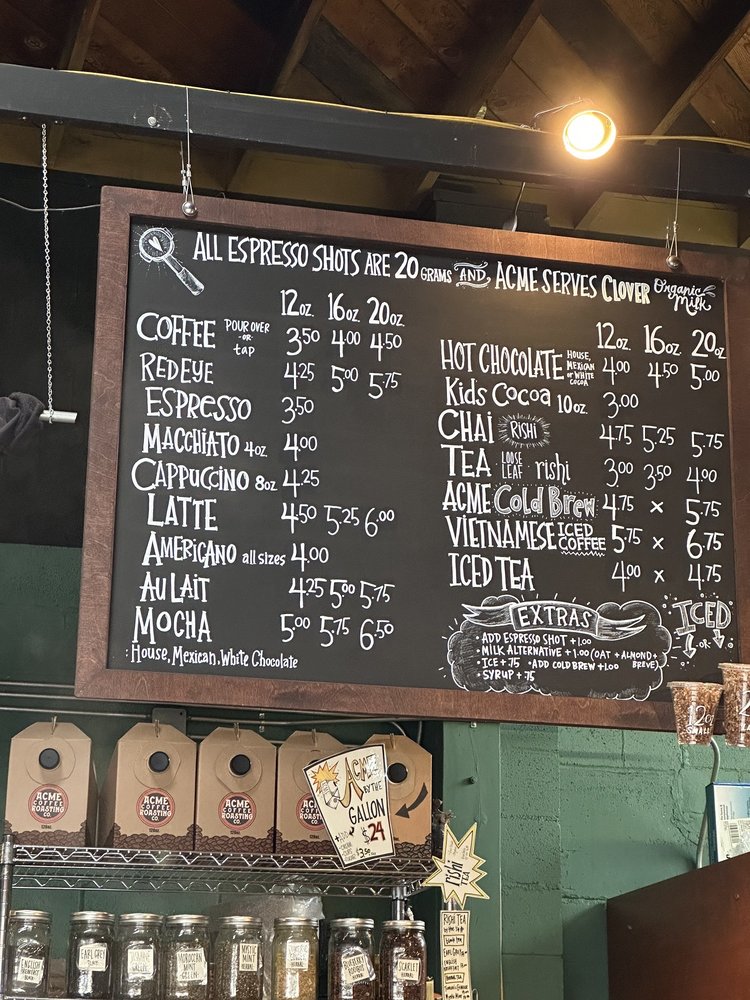 ALL ESPRESSO SHOTS ARE 20 GRAMS AND ACME SERVES CLOVER Organic Milk
12oz. 16oz. 20oz.
COFFEE POUR OVER -OR- tap 3.50 4.00 4.50
RED EYE 4.25 5.00 5.75
ESPRESSO 3.50
MACCHIATO 4oz. 4.00
CAPPUCCINO 8oz. 4.25
LATTE 4.50 5.25 6.00
AMERICANO all sizes 4.00
AU LAIT 4.25 5.00 5.75
MOCHA 5.00 5.75 6.50
: House, Mexican, White Chocolate
12oz. 16oz. 20oz.
HOT CHOCOLATE HOUSE, MEXICAN or WHITE COCOA 4.00 4.50 5.00
Kids Cocoa 10oz. 3.00
CHAI RiSHi 4.75 5.25 5.75
TEA LOOSE LEAF rishi 3.00 3.50 4.00
ACME Cold Brew 4.75 x 5.75
VIETNAMESE ICED COFFEE 5.75 x 6.75
ICED TEA 4.00 x 4.75
EXTRAS
• ADD ESPRESSO SHOT +1.00
• MILK ALTERNATIVE +1.00 (OAT + ALMOND + BREVE)
• ICE +.75 • ADD COLD BREW +1.00
• SYRUP +.75
ICED
OR
12oz
SMALL
ACME COFFEE ROASTING CO.
128oz.
ACME COFFEE ROASTING CO.
128oz.
ACME COFFEE ROASTING CO.
ACME
BY THE
GALLON
$24
$3.50
rishi
TEA
RISHI TEA
ENGLISH BREAKFAST
EARL GREY
MOROCCAN MINT GREEN
MYSTIC MINT HERBAL
BLUEBERRY
SCARLET